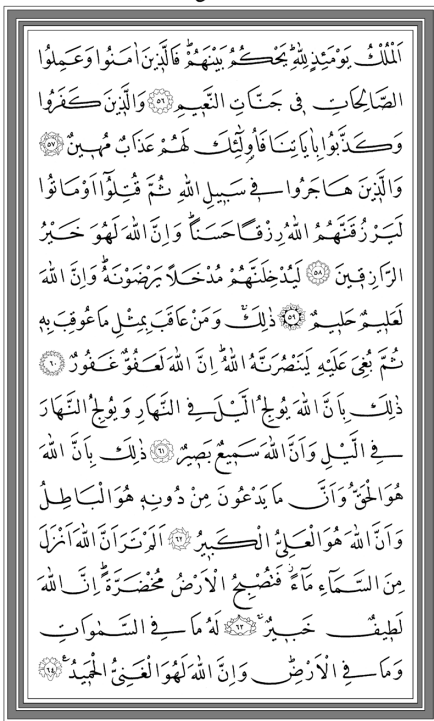 اَلْمُلْكُ يَوْمَئِذٍ لِلّٰهِۜ يَحْكُمُ بَيْنَهُمْۜ فَالَّذ۪ينَ اٰمَنُوا وَعَمِلُوا
الصَّالِحَاتِ ف۪ي جَنَّاتِ النَّع۪يمِ ﴿٥٦﴾ وَالَّذ۪ينَ كَفَرُوا
وَكَذَّبُوا بِاٰيَاتِنَا فَاُو۬لٰٓئِكَ لَهُمْ عَذَابٌ مُه۪ينٌ ﴿٥٧﴾
وَالَّذ۪ينَ هَاجَرُوا ف۪ي سَب۪يلِ اللّٰهِ ثُمَّ قُتِلُٓوا اَوْ مَاتُوا
لَيَرْزُقَنَّهُمُ اللّٰهُ رِزْقًا حَسَنًاۜ وَاِنَّ اللّٰهَ لَهُوَ خَيْرُ
الرَّازِق۪ينَ ﴿٥٨﴾ لَيُدْخِلَنَّهُمْ مُدْخَلًا يَرْضَوْنَهُۜ وَاِنَّ اللّٰهَ
لَعَل۪يمٌ حَل۪يمٌ ﴿٥٩﴾ ذٰلِكَۚ وَمَنْ عَاقَبَ بِمِثْلِ مَا عُوقِبَ بِه۪
ثُمَّ بُغِيَ عَلَيْهِ لَيَنْصُرَنَّهُ اللّٰهُۜ اِنَّ اللّٰهَ لَعَفُوٌّ غَفُورٌ ﴿٦٠﴾
ذٰلِكَ بِاَنَّ اللّٰهَ يُولِجُ الَّيْلَ فِي النَّهَارِ وَيُولِجُ النَّهَارَ
فِي الَّيْلِ وَاَنَّ اللّٰهَ سَم۪يعٌ بَص۪يرٌ ﴿٦١﴾ ذٰلِكَ بِاَنَّ اللّٰهَ
هُوَ الْحَقُّ وَاَنَّ مَا يَدْعُونَ مِنْ دُونِه۪ هُوَ الْبَاطِلُ
وَاَنَّ اللّٰهَ هُوَ الْعَلِيُّ الْكَب۪يرُ ﴿٦٢﴾ اَلَمْ تَرَ اَنَّ اللّٰهَ اَنْزَلَ
مِنَ السَّمَٓاءِ مَٓاءًۘ فَتُصْبِحُ الْاَرْضُ مُخْضَرَّةًۜ اِنَّ اللّٰهَ
لَط۪يفٌ خَب۪يرٌۚ ﴿٦٣﴾ لَهُ مَا فِي السَّمٰوَاتِ
وَمَا فِي الْاَرْضِۜ وَاِنَّ اللّٰهَ لَهُوَ الْغَنِيُّ الْحَم۪يدُ۟ ﴿٦٤﴾